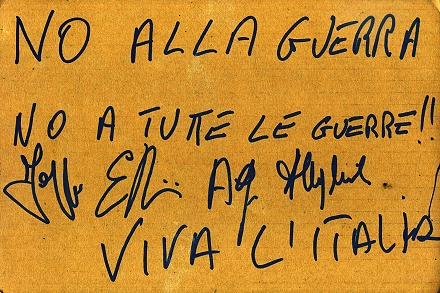 NO ALLA GUERRA
NO A TUTTE LE GUERRE!!
VIVA L'ITALIA